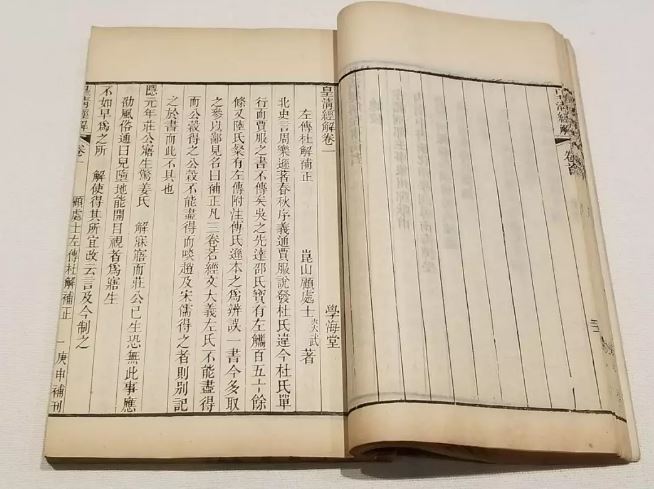 皇清經解
皇清經解卷一 學海堂
左傳杜解補正 崑山顧處士炎武著
北史言周樂遜著春秋序義通賈服說發杜氏違今杜氏單
行而賈服之書不傳矣吳之先達邵氏寶有左觿百五十餘
條又陸氏粲有左傳附注傅氏遜本之爲辨誤一書今多取
之參以鄙見名曰補正凡三卷若經文大義左氏不能盡得
而公穀得之公穀不能盡得而啖趙及宋儒得之者則別記
之於書而此不具也
隱元年莊公寤生驚姜氏 解寐寤而莊公已生恐無此事應
劭風俗通曰兒墮地能開目視者爲寤生
不如早爲之所 解使得其所宜改云言及今制之
皇清經解 卷一 顧處士左傳杜解補正 一 庚申補刊